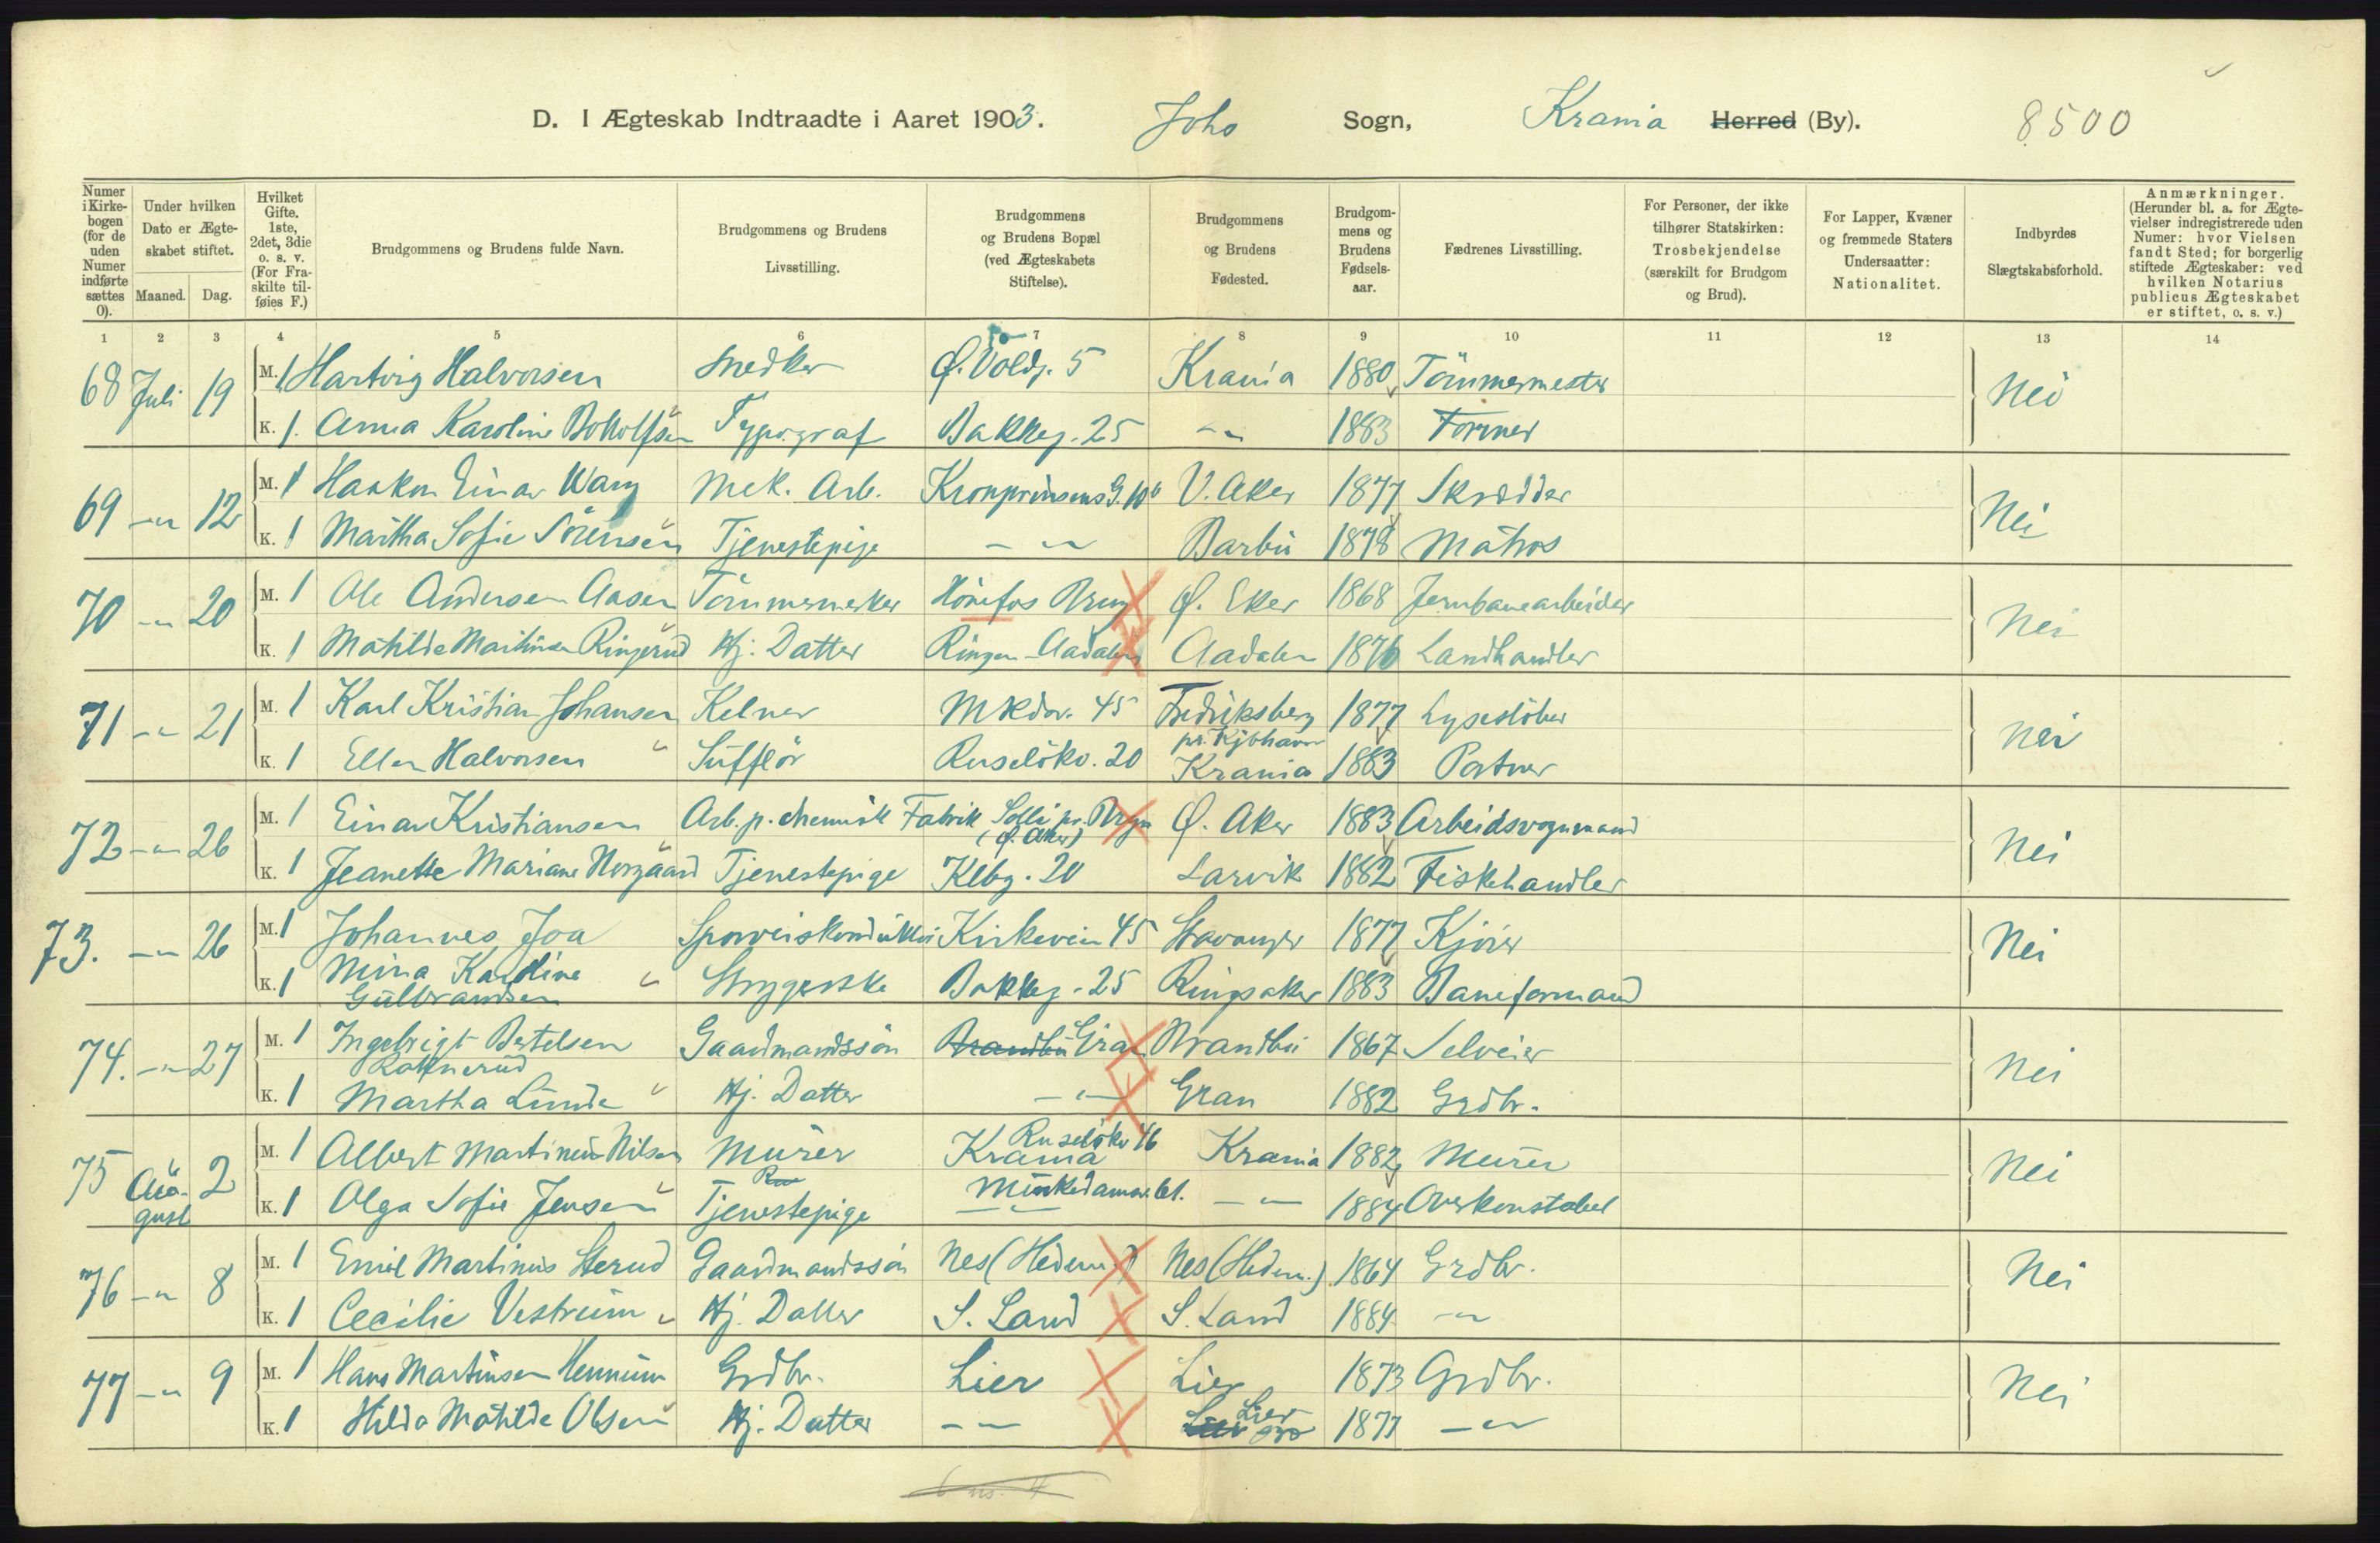 D. I Ægteskab Indtraadte i Aaret 1903. Joho Sogn, Krania Herred (By). 8500
Numer i Kirkebogen (for de uden Numer indførte sættes 0).
Under hvilken Dato er Ægteskabet stiftet.
Maaned. Dag.
Hvilket Gifte. 1ste, 2det, 3die o. s. v. (For Fraskilte tilføies F.)
Brudgommens og Brudens fulde Navn.
Brudgommens og Brudens Livsstilling.
Brudgommens og Brudens Bopæl (ved Ægteskabets Stiftelse).
Brudgommens og Brudens Fødested.
Brudgommens og Brudens Fødselsaar.
Fædrenes Livsstilling.
For Personer, der ikke tilhører Statskirken: Trosbekjendelse (særskilt for Brudgom og Brud).
For Lapper, Kvæner og fremmede Staters Undersaatter: Nationalitet.
Indbyrdes Slægtskabsforhold.
Anmærkninger. (Herunder bl. a. for Ægtevielser indregistrerede uden Numer: hvor Vielsen fandt Sted; for borgerlig stiftede Ægteskaber: ved hvilken Notarius publicus Ægteskabet er stiftet, o. s. v.)
1 2 3 4 5 6 7 8 9 10 11 12 13 14
68 Juli 19 M. 1 Hartvig Halvorsen Snedker Ø. Voldg. 5 Krania 1880 Tömmermester Nei
K. 1. Anna Karoline Typograf Bakkeg. 25 -"- 1883 Former
69 -"- 12 M. 1 Haakon Einar Wang Mek. Arb. Kronprinsens G. 10 V. Aker 1877 Skrædder Nei
K. 1 Martha Sofie Sörensen Tjenestepige -"- Barbu 1878 Matros
70 -"- 20 M. 1 Ole Andersen Aasen Tömmermerker Hönefos Ø. Eker 1868 Jernbanearbeider Nei
K. 1 Mathilde Martinsen Ringerud Hj. Datter Ringer. Aadalen Aadalen 1876 Landhandler
71 -"- 21 M. 1 Karl Kristian Johansen Kelner Mkdv. 45 Fredriksberg pr. Kjbhavn 1877 Lysestöber Nei
K. 1 Ellen Halvorsen " Sufflör Ruselökv. 20 Krania 1883 Portner
72 -"- 26 M. 1 Einar Kristiansen Arb. p. chemisk Fabrik Solli pr. Bryn (Ø. Aker) Ø. Aker 1883 Arbeidsvognmand Nei
K. 1 Jeanette Mariane Norgaard Tjenestepige Kebg. 20 Larvik 1882 Fiskehandler
73. -"- 26 M. 1 Johannes Joa Sporveiskonduktör Kirkevein 45 Stavanger 1877 Kjörer Nei
K. 1 Mina Karoline Gulbrandsen " Strygerske Bakkeg. 25 Ringsaker 1883 Baneformand
74. -"- 27 M. 1 Ingebrigt Bertelsen Gaardmandssön Brandbu Gran Brandbu 1867 Selveier Nei
K. 1 Martha Lunde " Hj. Datter -"- Gran 1882 Grdbr.
75 August 2 M. 1 Albert Martinius Nilsen Murer Ruselökv 16 Krania Krania 1882 Murer Nei
K. 1 Olga Sofie Jensen " Tjenestepige Munkedamsv. 61. -"- 1884 Overkonstabel
76 -"- 8 M. 1 Emil Martinius Sterud Gaardmandssön Nes (Hedem.) Nes (Hedem.) 1864 Grdbr. Nei
K. 1 Cecilie Vestrum " Hj. Datter S. Land S. Land 1884 -"-
77 -"- 9 M. 1 Hans Martinsen Hennum Grdbr. Lier Lier 1873 Grdbr. Nei
K. 1 Hilda Mathilde Olsen " Hj. Datter -"- Lier 1877 -"-